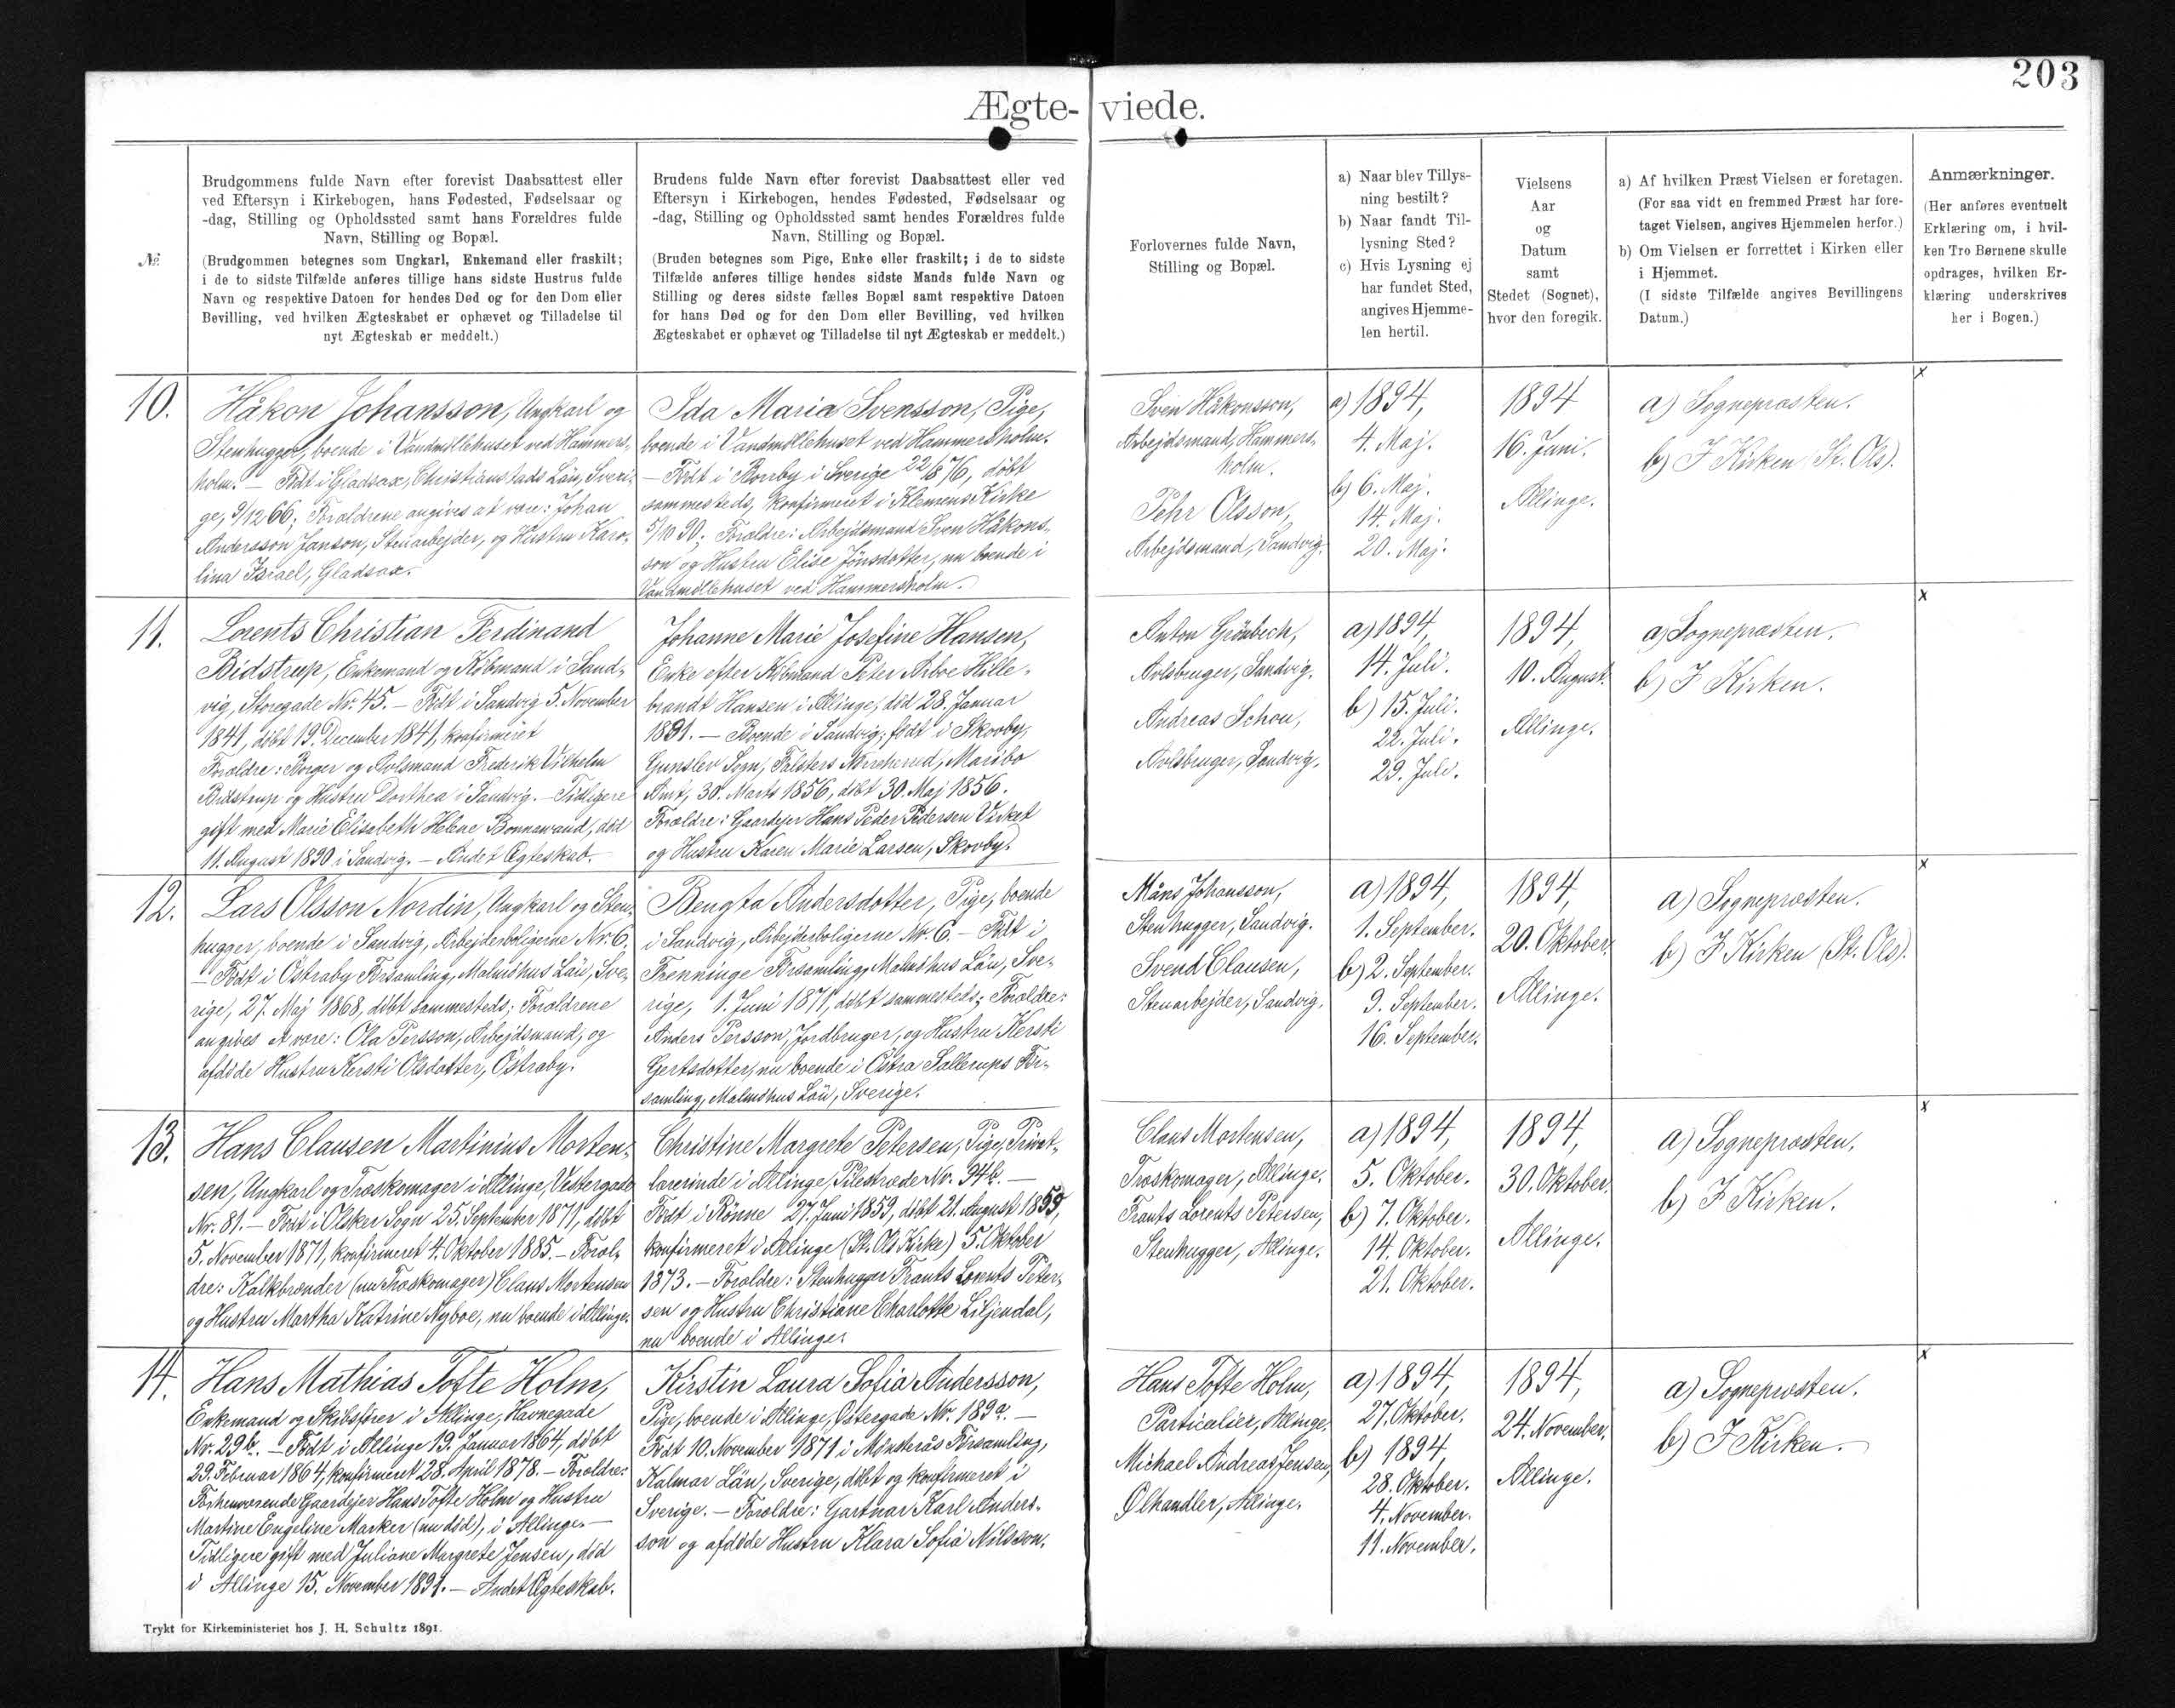 203
Ægte-viede.
№
Brudgommens fulde Navn efter forevist Daabsattest eller
ved Eftersyn i Kirkebogen, hans Fødested, Fødselsaar og
-dag, Stilling og Opholdssted samt hans Forældres fulde
Navn, Stilling og Bopæl.
(Brudgommen betegnes som Ungkarl, Enkemand eller fraskilt;
i de to sidste Tilfælde anføres tillige hans sidste Hustrus fulde
Navn og respektive Datoen for hendes Død og for den Dom eller
Bevilling, ved hvilken Ægteskabet er ophævet og Tilladelse til
nyt Ægteskab er meddelt.)
Brudens fulde Navn efter forevist Daabsattest eller ved
Eftersyn i Kirkebogen, hendes Fødested, Fødselsaar og
-dag, Stilling og Opholdssted samt hendes Forældres fulde
Navn, Stilling og Bopæl.
(Bruden betegnes som Pige, Enke eller fraskilt; i de to sidste
Tilfælde anføres tillige hendes sidste Mands fulde Navn og
Stilling og deres sidste fælles Bopæl samt respektive Datoen
for hans Død og for den Dom eller Bevilling, ved hvilken
Ægteskabet er ophævet og Tilladelse til nyt Ægteskab er meddelt.)
Forlovernes fulde Navn,
Stilling og Bopæl.
a) Naar blev Tillys-
ning bestilt?
b) Naar fandt Til-
lysning Sted?
c) Hvis Lysning ej
har fundet Sted,
angives Hjemme-
len hertil.
Vielsens
Aar
og
Datum
samt
Stedet (Sognet),
hvor den foregik.
a) Af hvilken Præst Vielsen er foretagen.
(For saa vidt en fremmed Præst har fore-
taget Vielsen, angives Hjemmelen herfor.)
b) Om Vielsen er forrettet i Kirken eller
i Hjemmet.
(I sidste Tilfælde angives Bevillingens
Datum.)
Anmærkninger.
(Her anføres eventuelt
Erklæring om, i hvil-
ken Tro Børnene skulle
opdrages, hvilken Er-
klæring underskrives
her i Bogen.)
10.
Håkon Johansson, Ungkarl og
Stenhugger, boende i Vandmøllehuset ved Hammers-
holm. – Født i Gladsax, Christianstads Län, Sveri-
ge, 9/12 66. Forældrene angives at være: Johan
Andersson Janson, Stenarbejder, og Hustru Karo-
lina Israel, Gladsax.
Ida Maria Svensson, Pige,
boende i Vandmøllehuset ved Hammersholm.
– Født i Borrby i Sverige 22/8 76, døbt
sammesteds, konfirmeret i Klemens Kirke
5/10 90. Forældre: Arbejdsmand Sven Håkons-
son og Hustru Elise Jönsdotter, nu boende i
Vandmøllehuset ved Hammersholm.
Sven Håkonsson,
Arbejdsmand, Hammers-
holm.
Pehr Olsson,
Arbejdsmand, Sandvig.
a) 1894,
4. Maj.
b) 6. Maj.
14. Maj.
20. Maj.
1894
16. Juni.
Allinge.
a) Sognepræsten.
b) I Kirken (St. Ols).
x
11.
Lorents Christian Ferdinand
Bidstrup, Enkemand og Købmand i Sand-
vig, Storegade Nr. 45. – Født i Sandvig 5. November
1841, døbt 19. December 1841, konfirmeret
Forældre: Borger og Avlsmand Frederik Vilhelm
Bidstrup og Hustru Dorthea i Sandvig. – Tidligere
gift med Marie Elisabeth Helene Bonnavand, død
11. August 1890 i Sandvig. – Andet Ægteskab.
Johanne Marie Josefine Hansen,
Enke efter Købmand Peter Arboe Hille-
brandt Hansen i Allinge, død 28. Januar
1891. – Boende i Sandvig; født i Skovby,
Gunslev Sogn, Falsters Nørreherred, Maribo
Amt, 30. Marts 1856, døbt 30. Maj 1856.
Forældre: Gaardejer Hans Peder Pedersen Virket
og Hustru Karen Marie Larsen, Skovby.
Anton Grönbech,
Avlsbruger, Sandvig.
Andreas Schou,
Avlsbruger, Sandvig.
a) 1894,
14. Juli.
b) 15. Juli.
22. Juli.
29. Juli.
1894,
10. August.
Allinge.
a) Sognepræsten.
b) I Kirken.
x
12.
Lars Olsson Nordin, Ungkarl og Sten-
hugger, boende i Sandvig, Arbejderboligerne Nr. 6.
– Født i Östraby Församling, Malmöhus Län, Sve-
rige, 27. Maj 1868, döbt sammesteds; Forældrene
angives at være: Ola Persson, Arbejdsmand, og
afdøde Hustru Kersti Olsdotter, Östraby.
Bengta Andersdotter, Pige, boende
i Sandvig, Arbejderboligerne Nr. 6. – Født i
Frenninge Församling, Malmöhus Län, Sve-
rige, 1. Juni 1871, døbt sammesteds; Forældre:
Anders Persson, Jordbruger, og Hustru Kersti
Gertsdotter, nu boende i Östra Sallerups För-
samling, Malmöhus Län, Sverige.
Måns Johansson,
Stenhugger, Sandvig.
Svend Clausen,
Stenarbejder, Sandvig.
a) 1894,
1. September.
b) 2. September.
9. September.
16. September.
1894,
20. Oktober.
Allinge.
a) Sognepræsten.
b) I Kirken (St. Ols).
x
13.
Hans Clausen Martinius Morten-
sen, Ungkarl og Træskomager i Allinge, Vestergade
Nr. 81. – Født i Olsker Sogn 25. September 1871, døbt
5. November 1871, konfirmeret 4. Oktober 1885. – Foræl-
dre: Kalkbrænder (nu Træskomager) Claus Mortensen
og Hustru Martha Katrine Nyboe, nu boende i Allinge.
Christine Margrete Petersen, Pige, Privat-
lærerinde i Allinge, Pilestræde Nr. 94b. –
Født i Rönne 27. Juni 1859, døbt 21. August 1859,
konfirmeret i Allinge (St. Ols Kirke) 5. Oktober
1873. – Forældre: Stenhugger Frants Lorents Peter-
sen og Hustru Christiane Charlotte Liljendal,
nu boende i Allinge.
Claus Mortensen,
Træskomager, Allinge.
Frants Lorents Petersen,
Stenhugger, Allinge.
a) 1894,
5. Oktober.
b) 7. Oktober.
14. Oktober.
21. Oktober.
1894,
30. Oktober.
Allinge.
a) Sognepræsten.
b) I Kirken.
x
14.
Hans Mathias Tofte Holm,
Enkemand og Skibsfører i Allinge, Havnegade
Nr. 29b. – Født i Allinge 19. Januar 1864, døbt
29. Februar 1864, konfirmeret 28. April 1878. – Forældre:
Forhenværende Gaardejer Hans Tofte Holm og Hustru
Martine Engeline Marker (nu død), i Allinge. –
Tidligere gift med Juliane Margrete Jensen, død
i Allinge 15. November 1891. – Andet Ægteskab.
Kirstin Laura Sofia Andersson,
Pige, boende i Allinge, Østergade Nr. 189a. –
Født 10. November 1871 i Mönsterås Församling,
Kalmar Län, Sverige, døbt og konfirmeret i
Sverige. – Forældre: Gartnar Karl Anders-
son og afdøde Hustru Klara Sofia Nilsson.
Hans Tofte Holm,
Particulier, Allinge.
Michael Andreas Jensen,
Ølhandler, Allinge.
a) 1894,
27. Oktober.
b) 1894,
28. Oktober.
4. November.
11. November.
1894,
24. November.
Allinge.
a) Sognepræsten.
b) I Kirken.
x
Trykt for Kirkeministeriet hos J. H. Schultz 1891.